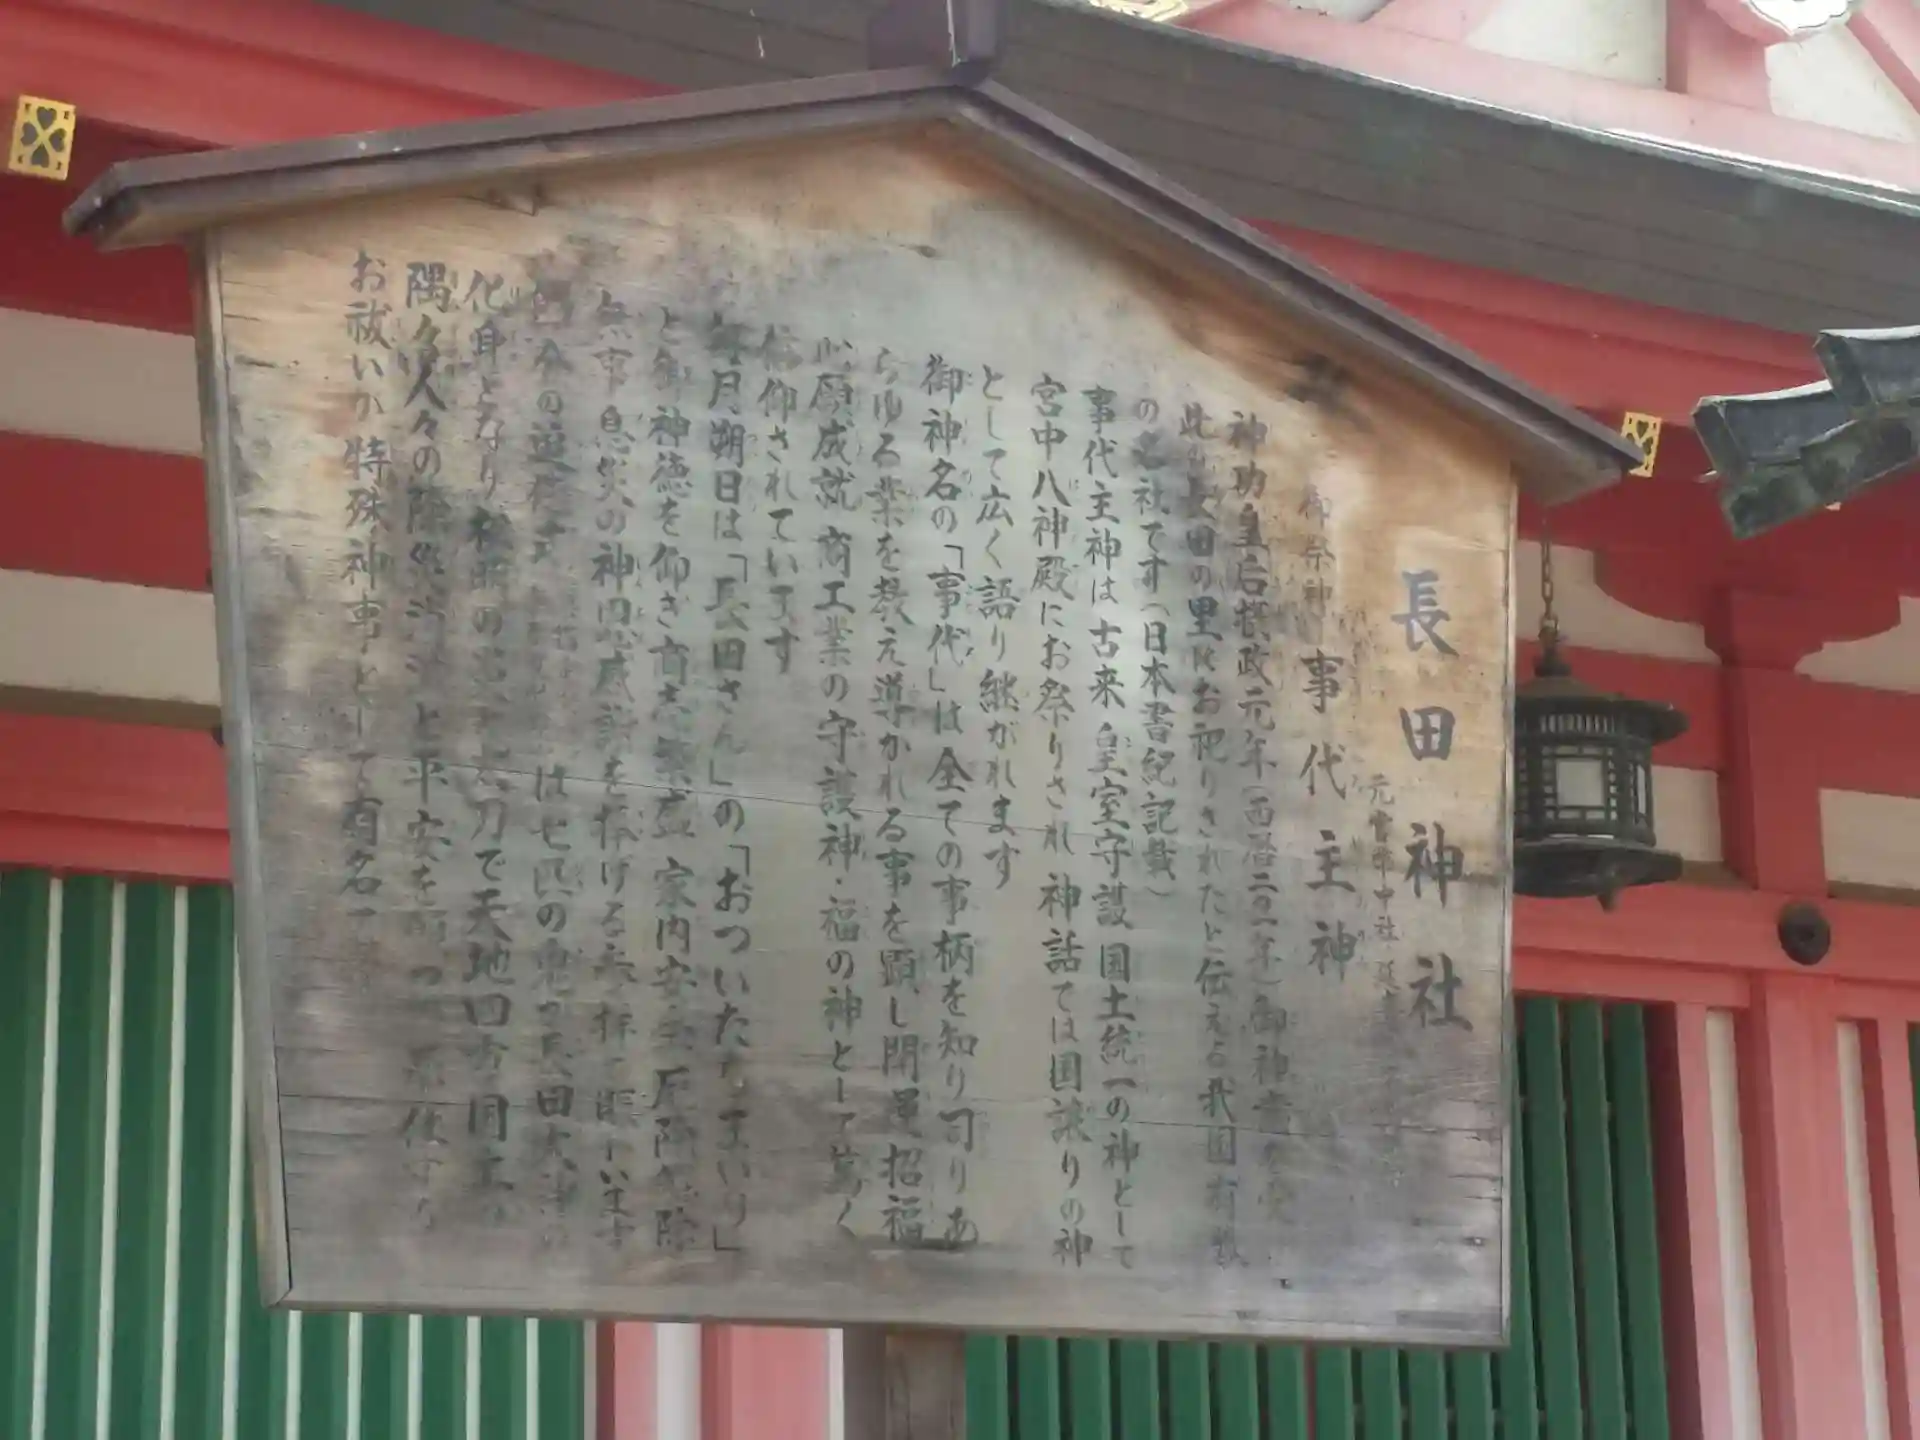 長田神社
元官幣中社
御祭神 事代主神
神功皇后摂政元年(西暦二〇一年)御神
此の長田の里にお祀りされたと伝える我国有数
の名社です(日本書紀記載)
事代主神は古来皇室守護国土統一の神として
宮中八神殿にお祭りされ神話では国譲りの神
として広く語り継がれます
御神名の「事代」は全ての事柄を知り司りあ
らゆる業を教え導かれる事を顕し開運招福
心願成就商工業の守護神・福の神として篤く
信仰されています
毎月朔日は「長田さん」の「おついたちまいり」
と御神徳を仰ぎ商売繁盛家内安全厄除解除
無事息災の神恩感謝を捧げる参拝で賑います
節分の追儺式 は七匹の鬼が長田大神の
化身となり松明の炎と太刀で天地四方
隅々人々の除災 と平安を
お祓いが特殊神事として有名